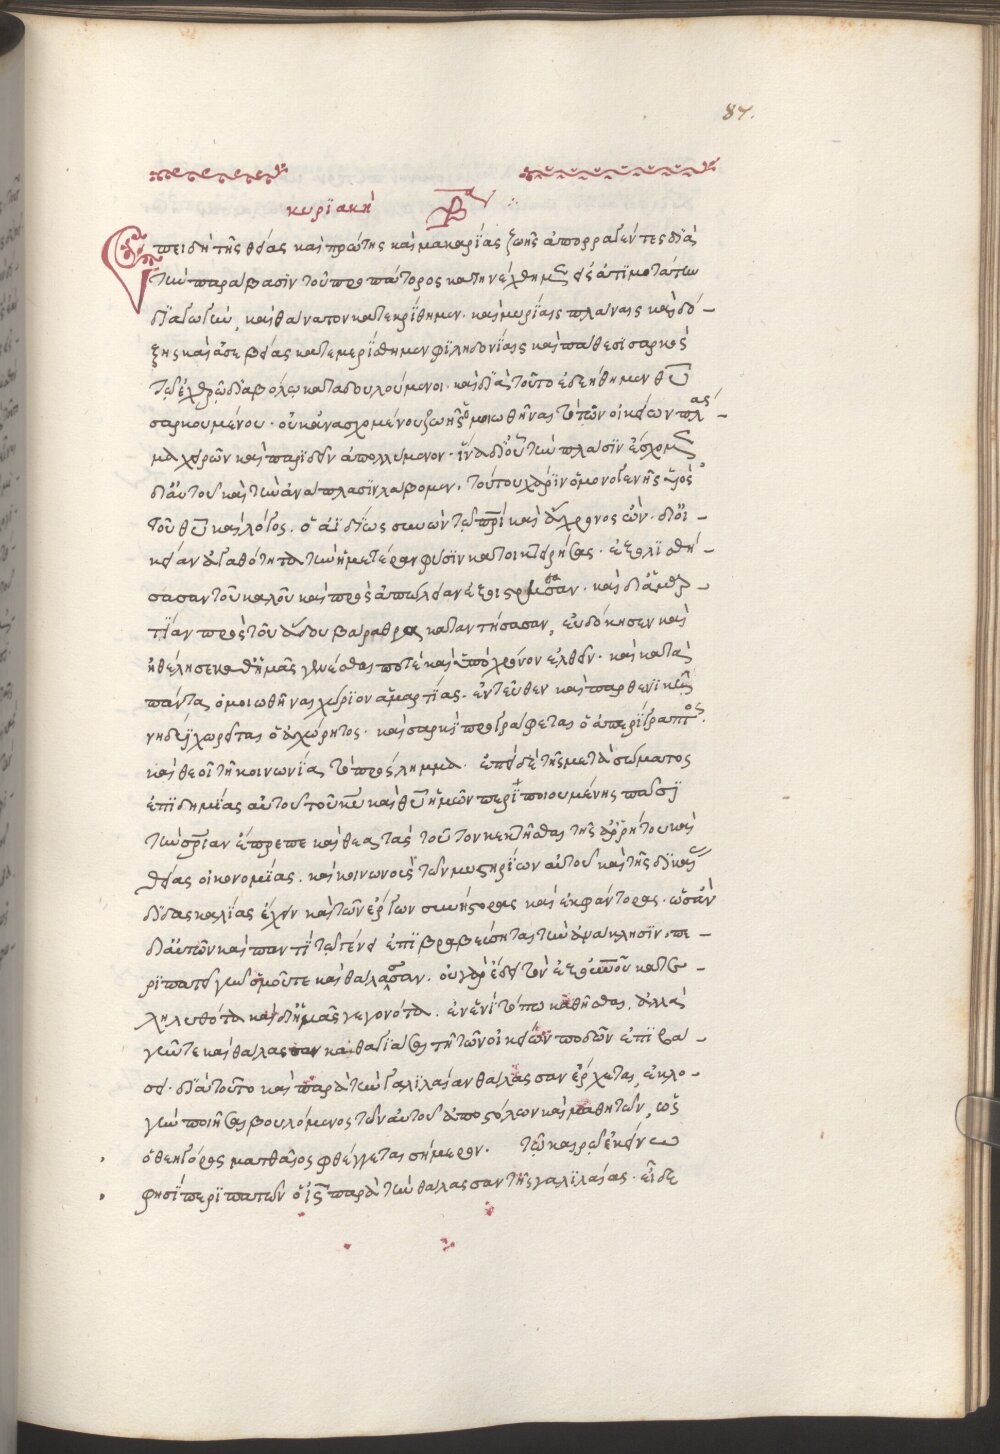 87.
κυρϊακὴ Β̅α
Ἐπειδὴ τῆς θείας καὶ πρώτης καὶ μακαρίας ζωῆς ἀπορραγέντες διὰ
τὴν παράβασϊν τοῦ προπάτορος κατηνέχθημεν
καὶ θάνατον κατεκρίθημεν. καὶ μυρίαις πλάναις καὶ δό-
ξης καὶ ἀσεβείας κατεμερίσθημεν φϊληδονίαις καὶ πάθεσι σαρκὸς
τῷ ἐχθρῷ διαβόλῳ καταδουλούμενοι. καὶ διὰ τοῦτο ἐδεήθημεν θυ
σαρκουμένου. οὐκ ἀνασχομένου ζωῆς τῶν οἰκείων πλασ-
μα χειρῶν καὶ παρϊδεῖν ἀπολλύμενον. ἵνα τὴν πλάσϊν ἔσχομεν
δι᾽ αὐτοῦ καὶ τὴν ἀνάπλασϊν λάβομεν. τούτου χάρϊν ὁ μονογενὴς υἱὸς
τοῦ θυ καὶ λόγος. ὁ ἀϊδίως συνὼν τῷ πρὶ καὶ ἄχρονος ὤν. δι᾽ οἰ-
κείαν ἀγαθότητα τὴν ἡμετέραν φύσϊν κατοικτειρήσας. ἐξολϊσθή-
σασαν τοῦ καλοῦ καὶ πρὸς ἀπώλειαν ἐξορισθεῖσαν. καὶ δι᾽ ἁμαρ-
τΐαν πρὸς τοῦ ἅδου βάραθρα καταντήσασαν, εὐδόκησεν καὶ
ἠθέλησε καθ᾽ ἡμᾶς γενέσθαι ποτὲ καὶ ὑπὸ χρόνον ἐλθεῖν. καὶ κατὰ
πάντα ὁμοιωθῆναι χωρϊς ἁμαρτίας. ἐντεῦθεν καὶ παρθενϊκῇ
νηδύϊ χωρεῖται ὁ ἀχώρητος. καὶ σαρκὶ προσγράφεται ὁ ἀπερίγραπτος.
καὶ θεοῖ τῇ κοινωνίᾳ τὸ πρόσλημμα. ἐπεὶ δὲ τῆς μετὰ σώματος
ἐπϊδημίας αὐτοῦ τοῦ κυ καὶ θυ ἡμῶν περϊποιουμένης πᾶσϊ
τὴν σρίαν ἔπρεπε καὶ θεατὰς τοῦτον κεκτῆσθαι τῆς ἀρρήτου καὶ
θείας οἰκονομίας. καὶ κοινωνοὺς τῶν μυστηρίων αὐτοῦ καὶ τῆς δϊκαίας
διδασκαλίας ἔχειν καὶ τῶν ἔργων συνήγορας καὶ ἐκφάντορας. ὡς ἂν
δι᾽ αὐτῶν καὶ παντὶ τῷ γένει ἐπϊβραβεύσηται τὴν ἀνάκλησϊν. πε-
ρϊπατεῖ γῆν ὁμοῦ τε καὶ θάλασσαν. οὐ γὰρ ἔδει τὸν ἐξ οὐνοῦ κατε-
ληλυθότα καὶ δι᾽ ἡμᾶς γεγονότα. ἐν ἑνὶ τόπῳ καθῆσθαι. ἀλλὰ
γῆν τε καὶ θάλασσαν καθαγϊάσαι τῇ τῶν οἰκείων ποδῶν ἐπϊβά-
σει. διὰ τοῦτο καὶ παρὰ τὴν γαλϊλαίαν θάλασσαν ἔρχεται, ἐκλο-
γὴν ποιῆσαι βουλόμενος τῶν αὐτοῦ ἀποστόλων καὶ μαθητῶν, ὡς
ὁ θεηγόρος ματθαῖος φθέγγεται σήμερον. τῷ καιρῷ ἐκείνω
φησϊ περϊπατῶν ὁ ις παρὰ τὴν θάλασσαν τῆς γαλϊλαίας. εἶδε